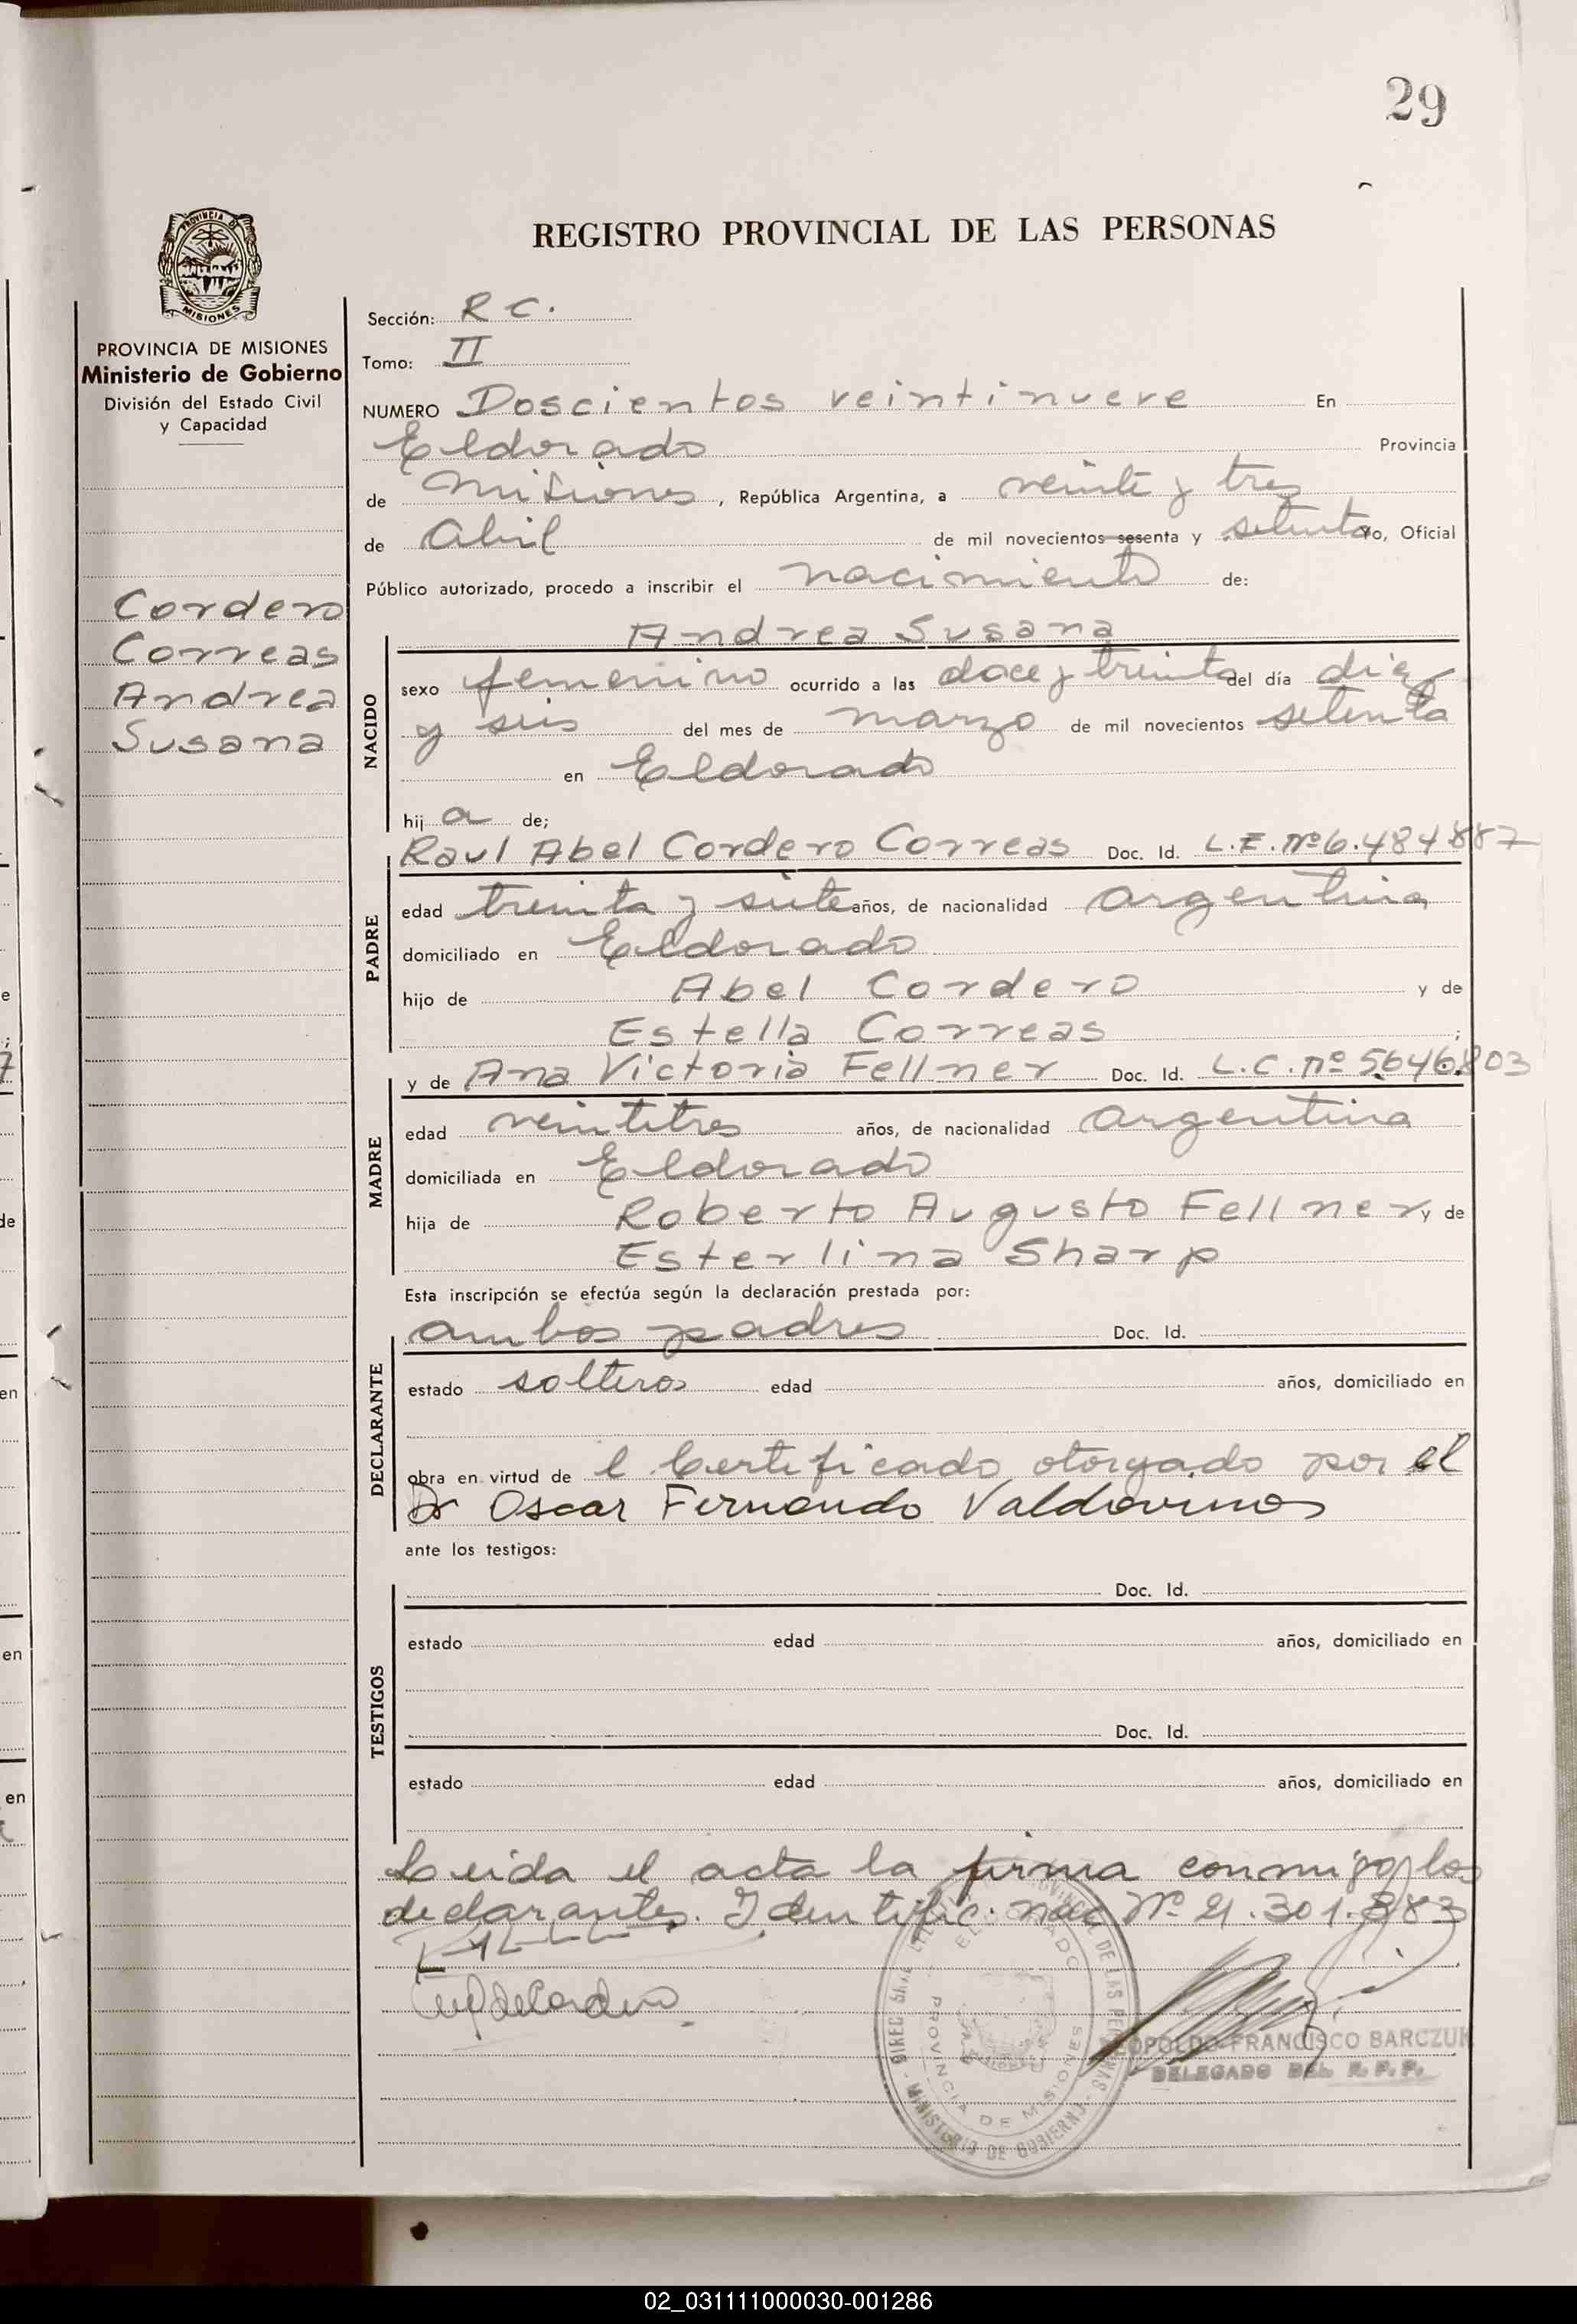 29
REGISTRO PROVINCIAL DE LAS PERSONAS
PROVINCIA DE MISIONES
Ministerio de Gobierno
División del Estado Civil
y Capacidad
Cordero
Correas
Andrea
Susana
Sección: R C.
Tomo: II
NUMERO Doscientos veintinueve En
Eldorado Provincia
de Misiones, República Argentina, a veinte y tres
de Abril de mil novecientos sesenta y setenta Yo, Oficial
Público autorizado, procedo a inscribir el nacimiento de:
Andrea Susana
NACIDO
sexo femenino ocurrido a las doce y treinta del día diez
y seis del mes de marzo de mil novecientos setenta
en Eldorado
hij a de;
Raul Abel Cordero Correas Doc. Id. L.E. Nº 6.484887
PADRE
edad treinta y siete años, de nacionalidad argentina
domiciliado en Eldorado
hijo de Abel Cordero y de
Estella Correas;
y de Ana Victoria Fellner Doc. Id. L.C. nº 5646.803
MADRE
edad veintitres años, de nacionalidad argentina
domiciliada en Eldorado
hija de Roberto Augusto Fellner y de
Esterlina Sharp
Esta inscripción se efectúa según la declaración prestada por:
ambos padres Doc. Id.
DECLARANTE
estado solteros edad años, domiciliado en
obra en virtud de l Certificado otorgado por el
Dr Oscar Fernando Valdovinos
ante los testigos:
Doc. Id.
TESTIGOS
estado edad años, domiciliado en
Doc. Id.
estado edad años, domiciliado en
Leida el acta la firma conmigo los
declarantes. Identific. nac Nº 21.301.383
LEOPOLDO FRANCISCO BARCZUK
DELEGADO DEL R. P. P.
ELDORADO
PROVINCIA DE MISIONES
MINISTERIO DE GOBIERNO
02_031111000030-001286